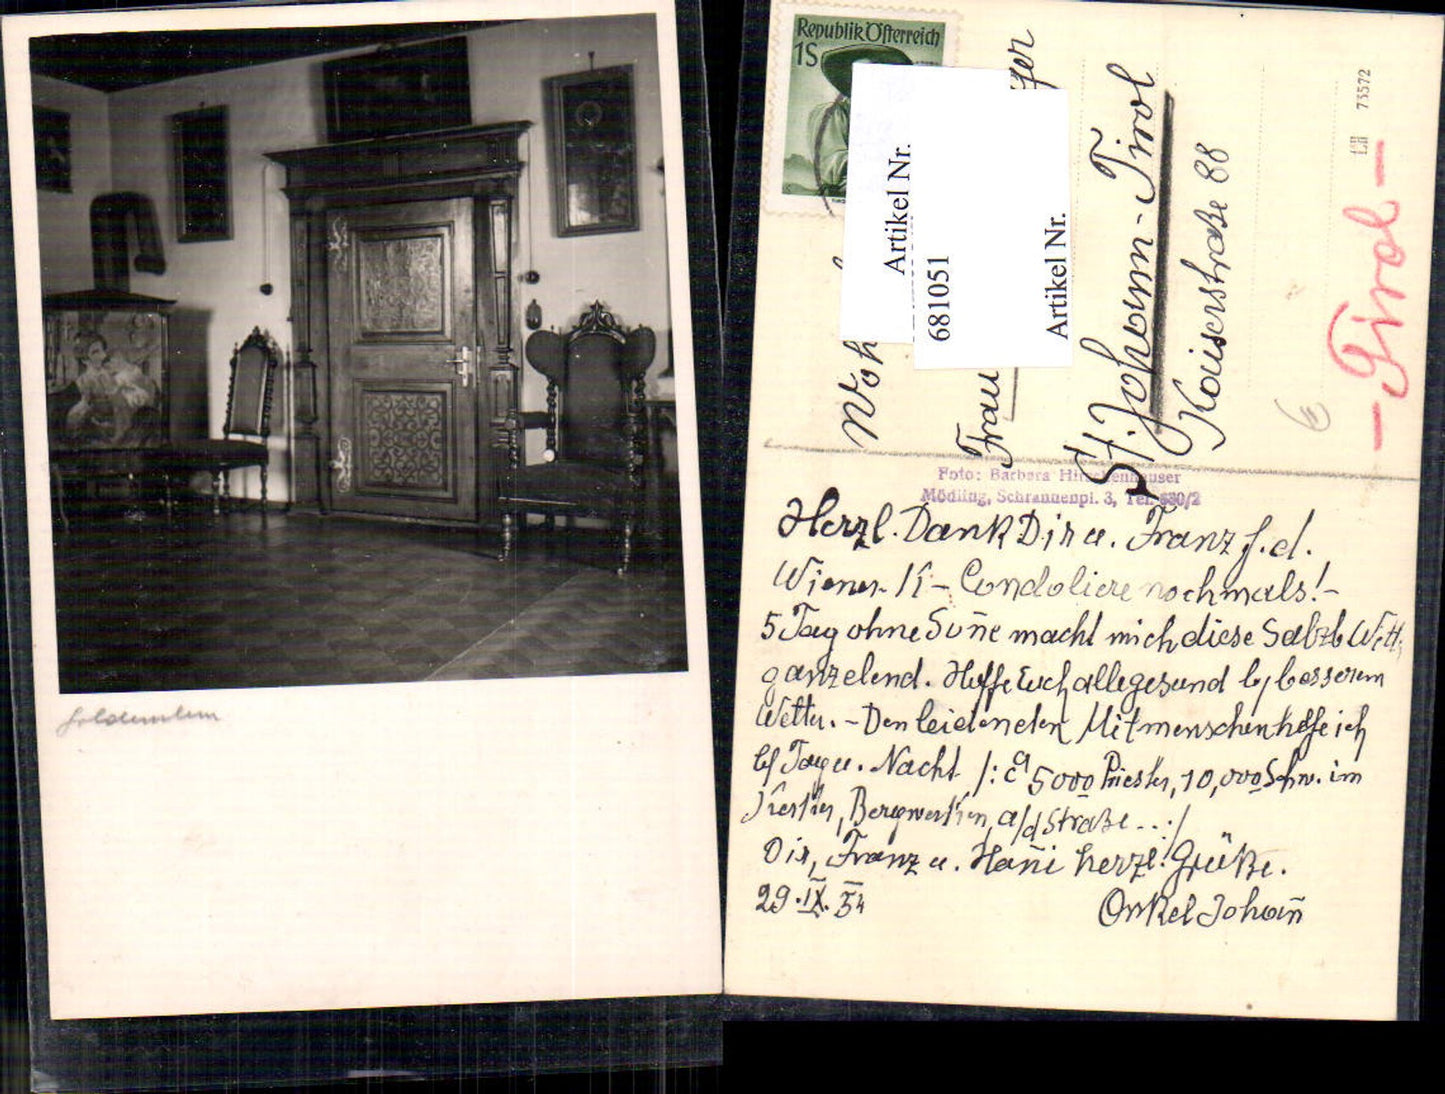 Goldenstein
Republik Österreich
1S
Artikel Nr.
681051
Artikel Nr.
Frau
St. Johann - Tirol
Kaiserstraße 88
— Tirol —
73572
Foto: Barbara
Mödling, Schrannenpl. 3, Tel. 630/2
Herzl. Dank Dir u. Franz f. d.
Wiener K - Condoliere nochmals! -
5 Tag ohne Sonne macht mich diese Salzb Wett.
ganz elend. Hoffe Euch alle gesund b/ besserem
Wetter. - Den leidenden Mitmenschen helfe ich
b/ Tag u. Nacht /: ca 5000 Priester, 10,000 Schw. im
Kerker, Bergwerken, a/d Straße ... :/
Dir, Franz u. Hañi herzl! Grüße.
29. IX. 54
Onkel Johañ